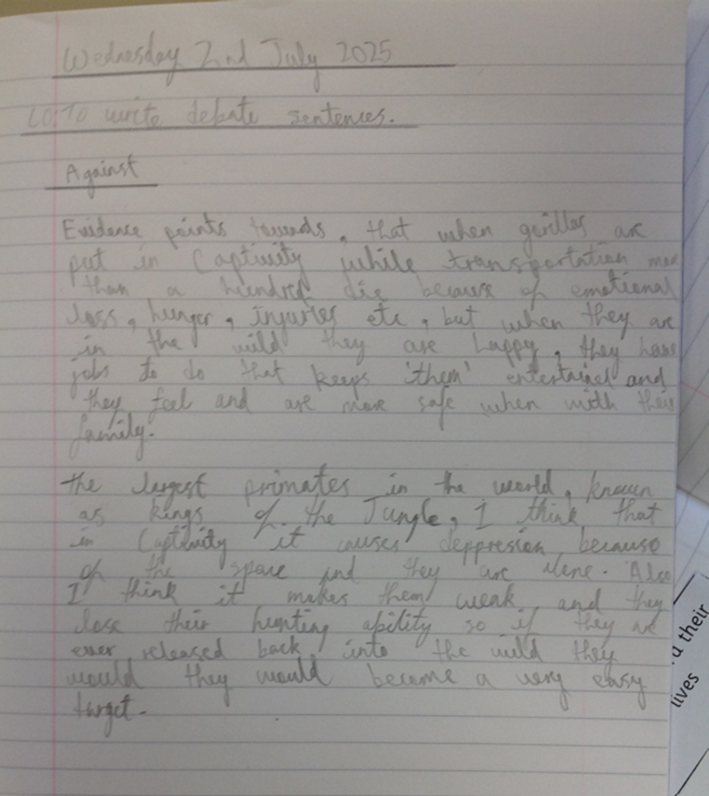 Wednesday 2nd July 2025
LO: TO write debate sentences.
Against
Evidence points towards, that when gorillas are
put in Captivity while transportation more
than a hundred die because of emotional
loss, hunger, injuries etc, but when they are
in the wild they are happy, they have
jobs to do that keeps 'them' entertained and
they feel and are more safe when with their
family.
the largest primates in the world, known
as kings of the Jungle, I think that
in Captivity it causes depression because
of the space and they are alone. Also
I think it makes them weak, and they
lose their hunting ability so if they are
ever released back into the wild they
would they would become a very easy
target.
d their
lives